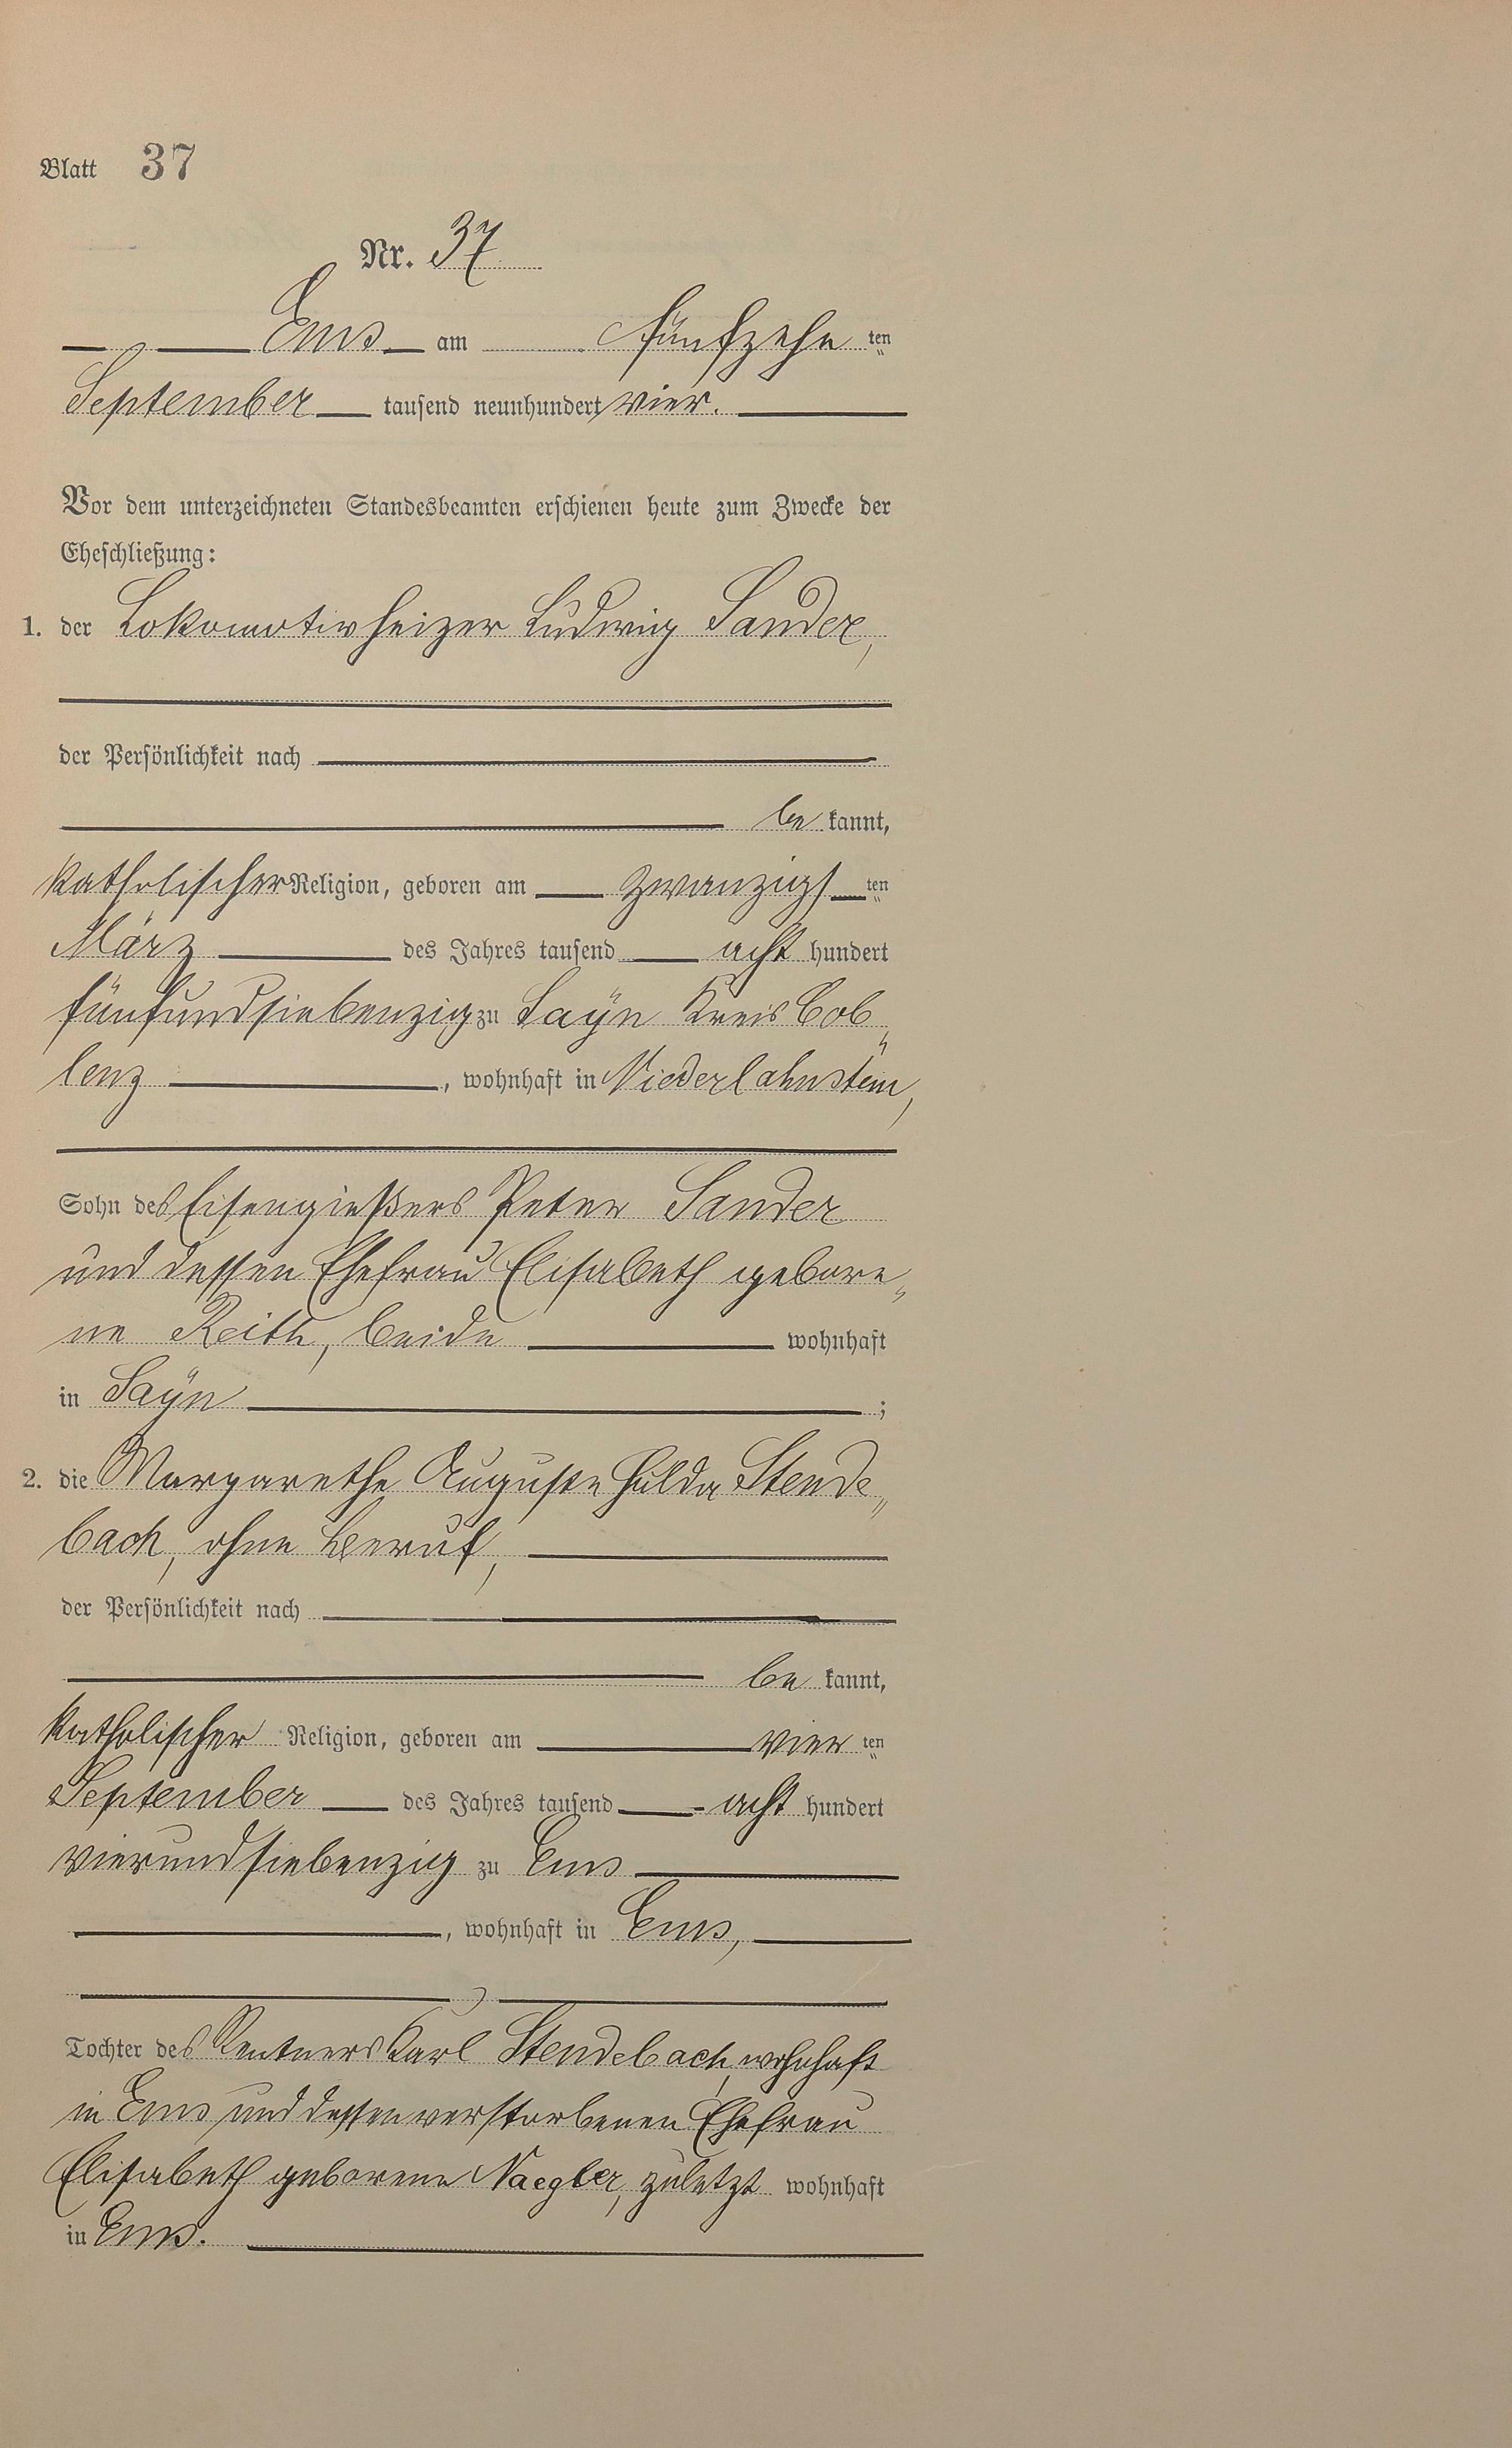 Blatt 37
Nr. 37
Ems am fünfzehn ten
September tausend neunhundert vier.
Vor dem unterzeichneten Standesbeamten erschienen heute zum Zwecke der
Eheschließung:
1. der Lokomotivheizer Ludwig Sander,
der Persönlichkeit nach
be kannt,
katholischer Religion, geboren am zwanzigs ten
März des Jahres tausend acht hundert
fünfundsiebenzig zu Sayn Kreis Cob„
lenz, wohnhaft in Niederlahnstein,
Sohn des Eisengießers Peter Sander
und dessen Ehefrau Elisabeth gebore„
ne Reith, beide wohnhaft
in Sayn ;
2. die Margarethe Auguste Hulda Stende„
bach, ohne Beruf,
der Persönlichkeit nach
be kannt,
katholischer Religion, geboren am vier ten
September des Jahres tausend acht hundert
vierundsiebenzig zu Ems
, wohnhaft in Ems,
Tochter des Rentners Karl Stendebach, wohnhaft
in Ems und dessen verstorbenen Ehefrau
Elisabeth geborene Naegler, zuletzt wohnhaft
in Ems.